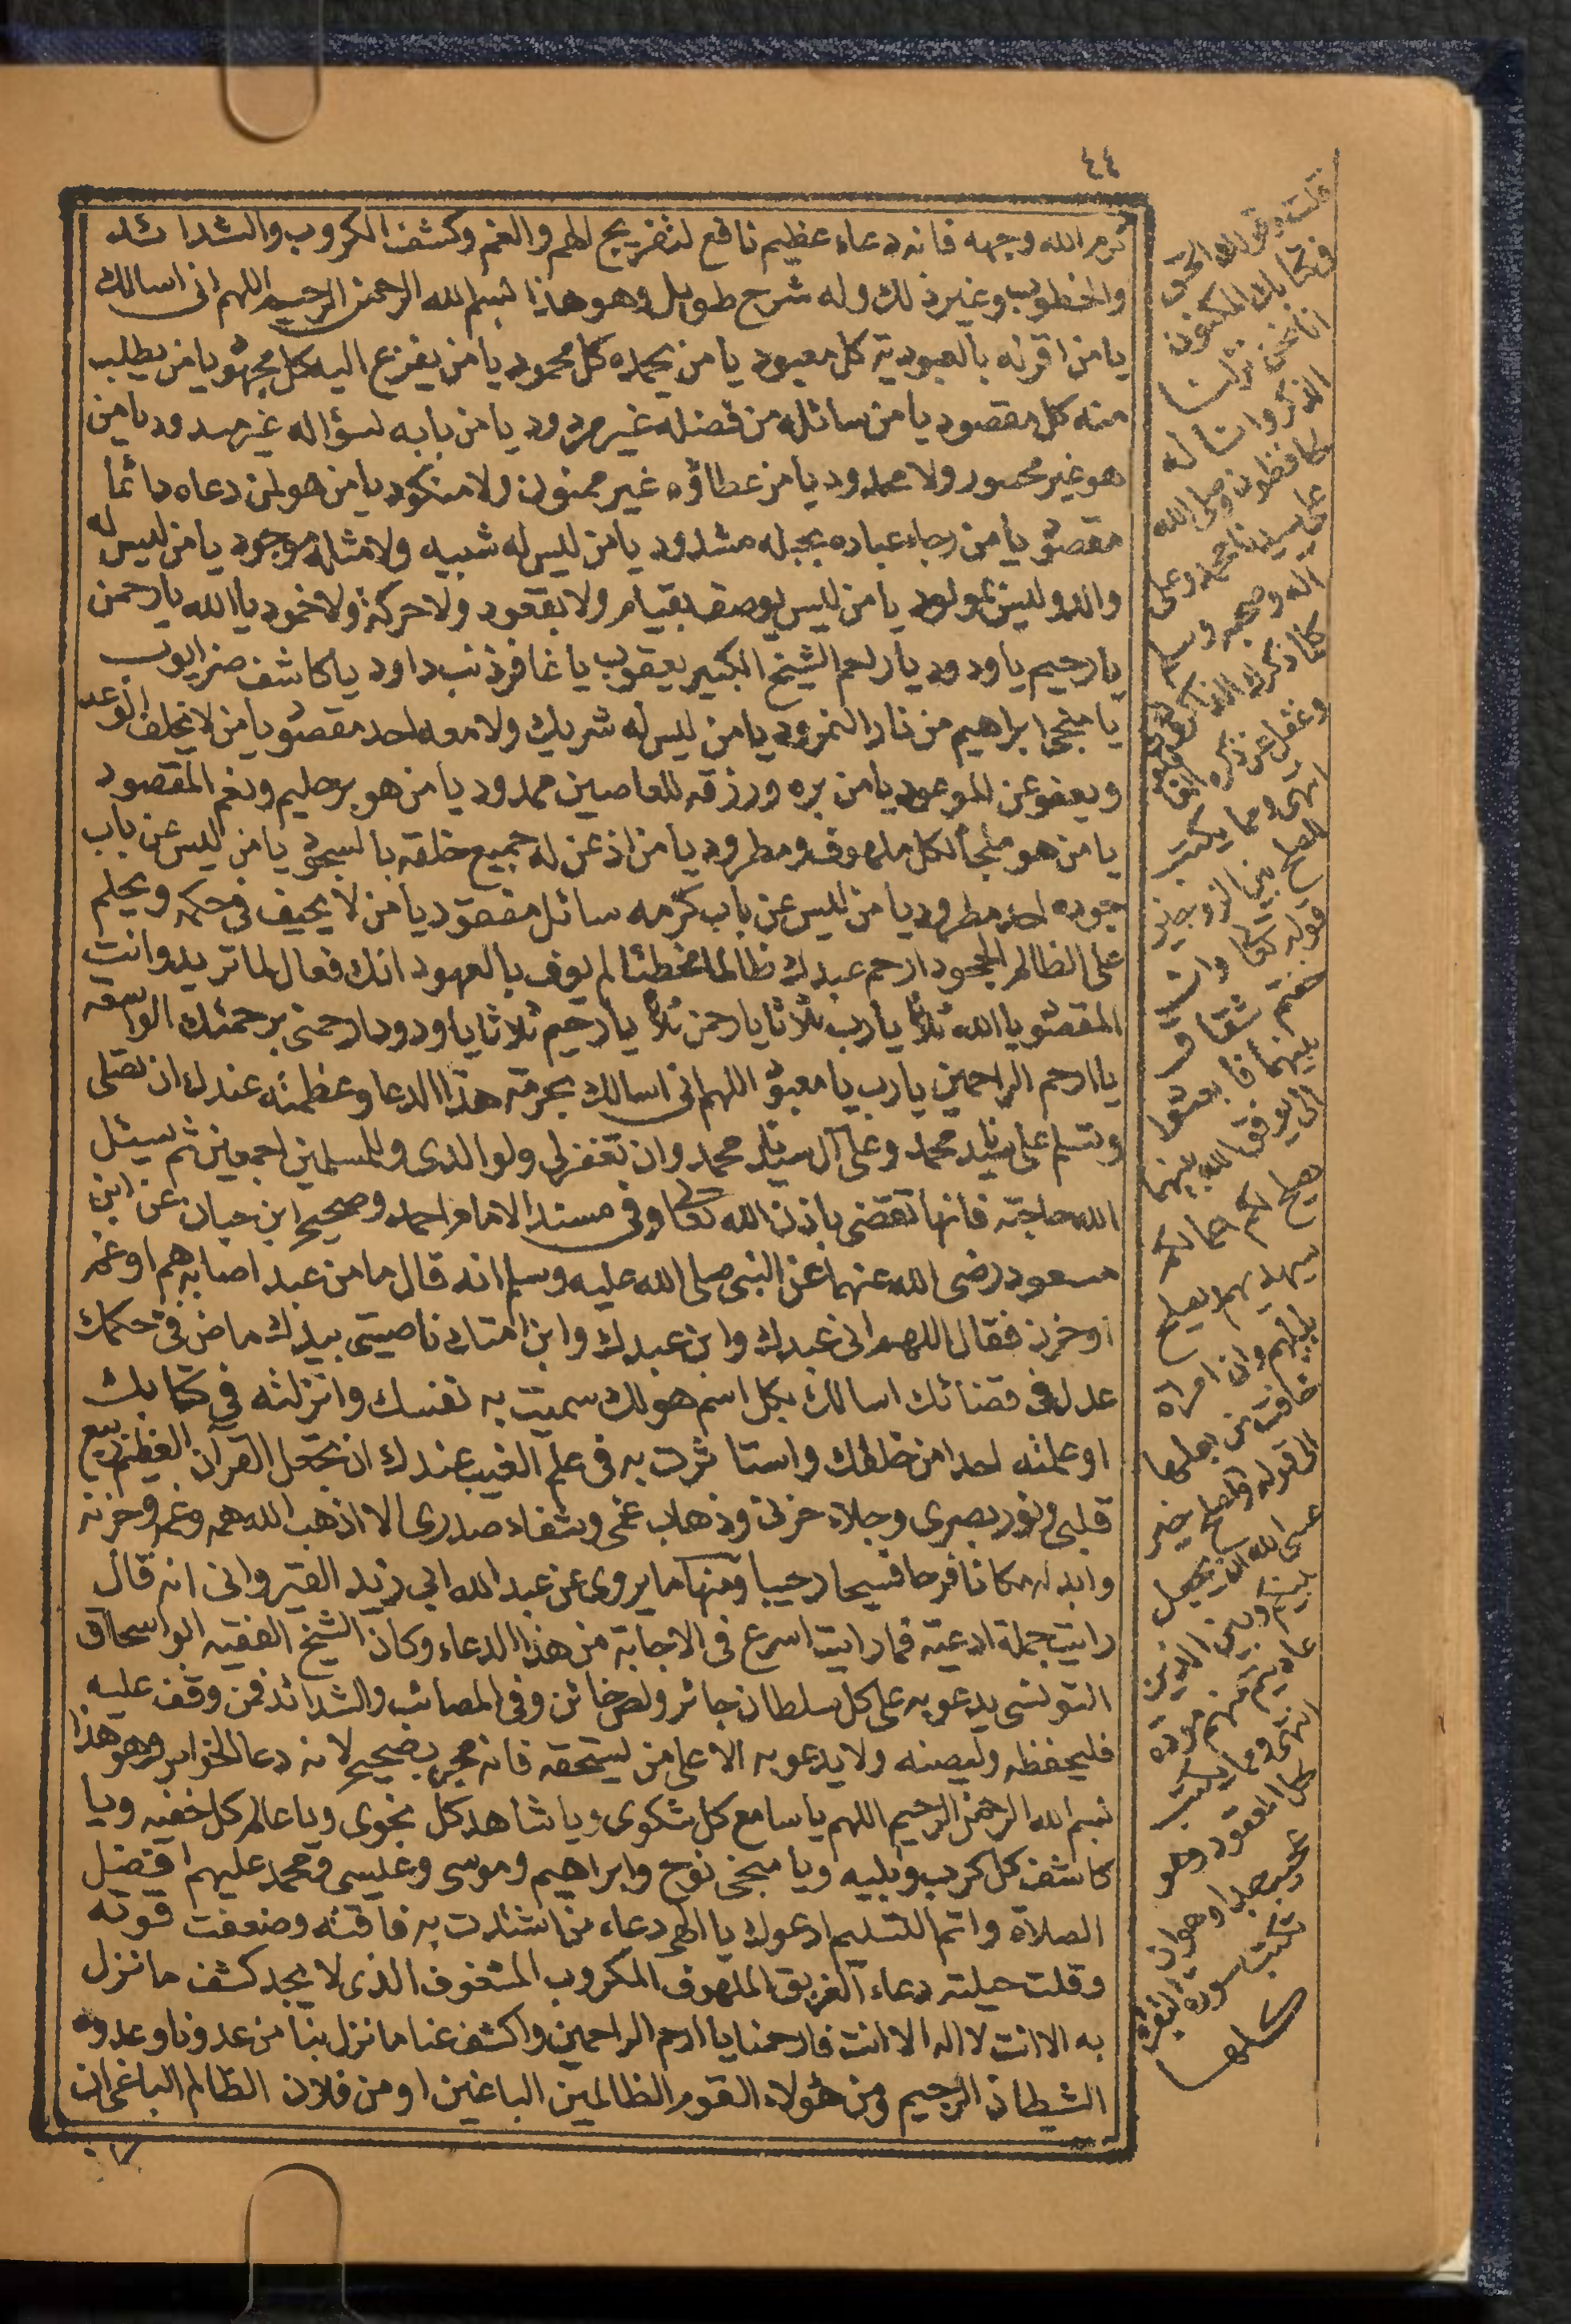 ٤٤
كرم الله وجهه فانه دعاء عظيم نافع لتفريج الهم والغم وكشف الكروب والشدائد
والخطوب وغير ذلك وله شرح طويل وهو هذا بسم الله الرحمن الرحيم اللهم انى اسالك
يا من اقر له بالعبودية كل معبود يا من يحمده كل محمود يا من يفزع اليه كل مجهود يا من يطلب
منه كل مقصود يا من سائله من فضله غير مردود يا من بابه لسؤاله غير مسدود يا من
هو غير محصور ولا محدود يا من عطاؤه غير ممنون ولا منكود يا من هو لمن دعاه دائما
مقصود يا من رجاء عباده بحبله مشدود يا من ليس له شبيه ولا مثله موجود يا من ليس له
والد وليس بمولود يا من ليس يوصف بقيام ولا بقعود ولا حركة ولا خمود يا الله يا رحمن
يا رحيم يا ودود يا راحم الشيخ الكبير يعقوب يا غافر ذنب داود يا كاشف ضر ايوب
يا منجى ابراهيم من نار النمرود يا من ليس له شريك ولا معه احد مقصود يا من لا يخلف الوعد
ويعفو عن الموعود يا من بره ورزقه للعاصين ممدود يا من هو بر حليم ونعم المقصود
يا من هو ملجأ لكل ملهوف ومطرود يا من اذعن له جميع خلقه بالسجود يا من ليس عن باب
جوده احد مطرود يا من ليس عن باب كرمه سائل مفقود يا من لا يحيف فى حكمه ويحلم
على الظالم الجحود ارحم عبدك ظالما مخطئا لم يوف بالعهود انك فعال لما تريد وانت
المقصود يا الله ثلاثا يا رب ثلاثا يا رحمن ثلاثا يا رحيم ثلاثا يا ودود ارحمنى برحمتك الواسعه
يا ارحم الراحمين يا رب يا معبود اللهم انى اسالك بحرمة هذا الدعا وعظمته عندك ان تصلى
وتسلم على سيدنا محمد وعلى آل سيدنا محمد وان تغفر لى ولوالدى وللمسلمين اجمعين ثم يسئل
الله حاجته فانها تقضى باذن الله تعالى وفى مسند الامام احمد وصحيح ابن حبان عن ابن
مسعود رضى الله عنهما عن النبى صلى الله عليه وسلم انه قال ما من عبد اصابه هم او غم
او حزن فقال اللهم انى عبدك وابن عبدك وابن امتك ناصيتى بيدك ماض فى حكمك
عدل فى قضائك اسالك بكل اسم هو لك سميت به نفسك وانزلته فى كتابك
او علمته احدا من خلقك واستاثرت به فى علم الغيب عندك ان تجعل القرآن العظيم ربيع
قلبى ونور بصرى وجلاء حزنى وذهاب غمى وشفاء صدرى الا اذهب الله همه وغمه وحزنه
وابدله مكانا فرحا فسيحا رحيبا ومنها ما يروى عن عبد الله ابى زيد القيروانى انه قال
رايت جملة ادعية فما رايت اسرع فى الاجابة من هذا الدعاء وكان الشيخ الفقيه ابو اسحاق
التونسى يدعو به على كل سلطان جائر ولص خائن وفى المصائب والشدائد فمن وقف عليه
فليحفظه وليصنه ولا يدعو به الا على من يستحقه فانه مجرب صحيح لانه دعا الخواص وهو هذا
بسم الله الرحمن الرحيم اللهم يا سامع كل شكوى ويا شاهد كل نجوى ويا عالم كل خفيه ويا
كاشف كل كرب وبليه ويا منجى نوح وابراهيم وموسى وعيسى ومحمد عليهم افضل
الصلاة واتم التسليم ادعوك يا الهى دعاء من اشتدت به فاقته وضعفت قوته
وقلت حيلته دعاء الغريق الملهوف المكروب المشغوف الذى لا يجد كشف ما نزل
به الا انت لا اله الا انت فارحمنا يا ارحم الراحمين واكشف عنا ما نزل بنا من عدونا وعدوه
الشطان الرجيم ومن هؤلاء القوم الظالمين الباغين او من فلان الظالم الباغى ان
قلت وقولك الحق
فى كتابك المكنون
انا نحن نزلنا
الذكر وانا له
لحافظون وصلى الله
على سيدنا محمد وعلى
اله وصحبه وسلم
كلما ذكرك الذاكرون
وغفل عن ذكره الغافلون
انتهى ومما يكتب
للصلح بين الزوجين
قوله تعالى وان
خفتم شقاق
بينهما فابعثوا
الى يوفق الله بينهما
يصلح لكم اعمالكم
سيهديهم ويصلح
بالهم وان امراة
خافت من بعلها
الى قوله والصلح خير
عسى الله ان يجعل
بينكم وبين الذين
عاديتم منهم مودة
انتهى ومما يكتب
لحل المعقود وهو
تكتب سورة البقرة
كلها